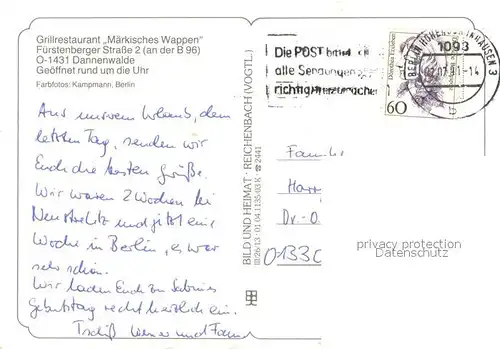 Grillrestaurant „Märkisches Wappen"
Fürstenberger Straße 2 (an der B 96)
O-1431 Dannenwalde
Geöffnet rund um die Uhr
Farbfotos: Kampmann, Berlin
Aus unserem Urlaub, dem
letzten Tag, senden wir
Euch die besten Grüße.
Wir waren 2 Wochen bei
Neustrelitz und jetzt eine
Woche in Berlin, es war
sehr schön.
Wir laden Euch zu Sabines
Geburtstag recht herzlich ein.
Tschüß Werner und
BILD UND HEIMAT · REICHENBACH (VOGTL.)
III/26/13 · 01 04 1135/03 K 2441
Die POST
alle Sendungen
richtig
BERLIN HOHENSCHÖNHAUSEN 3
1093
02.07.91-14
60
Famil
Harr
Dr.-O
O1330
privacy protection
Datenschutz